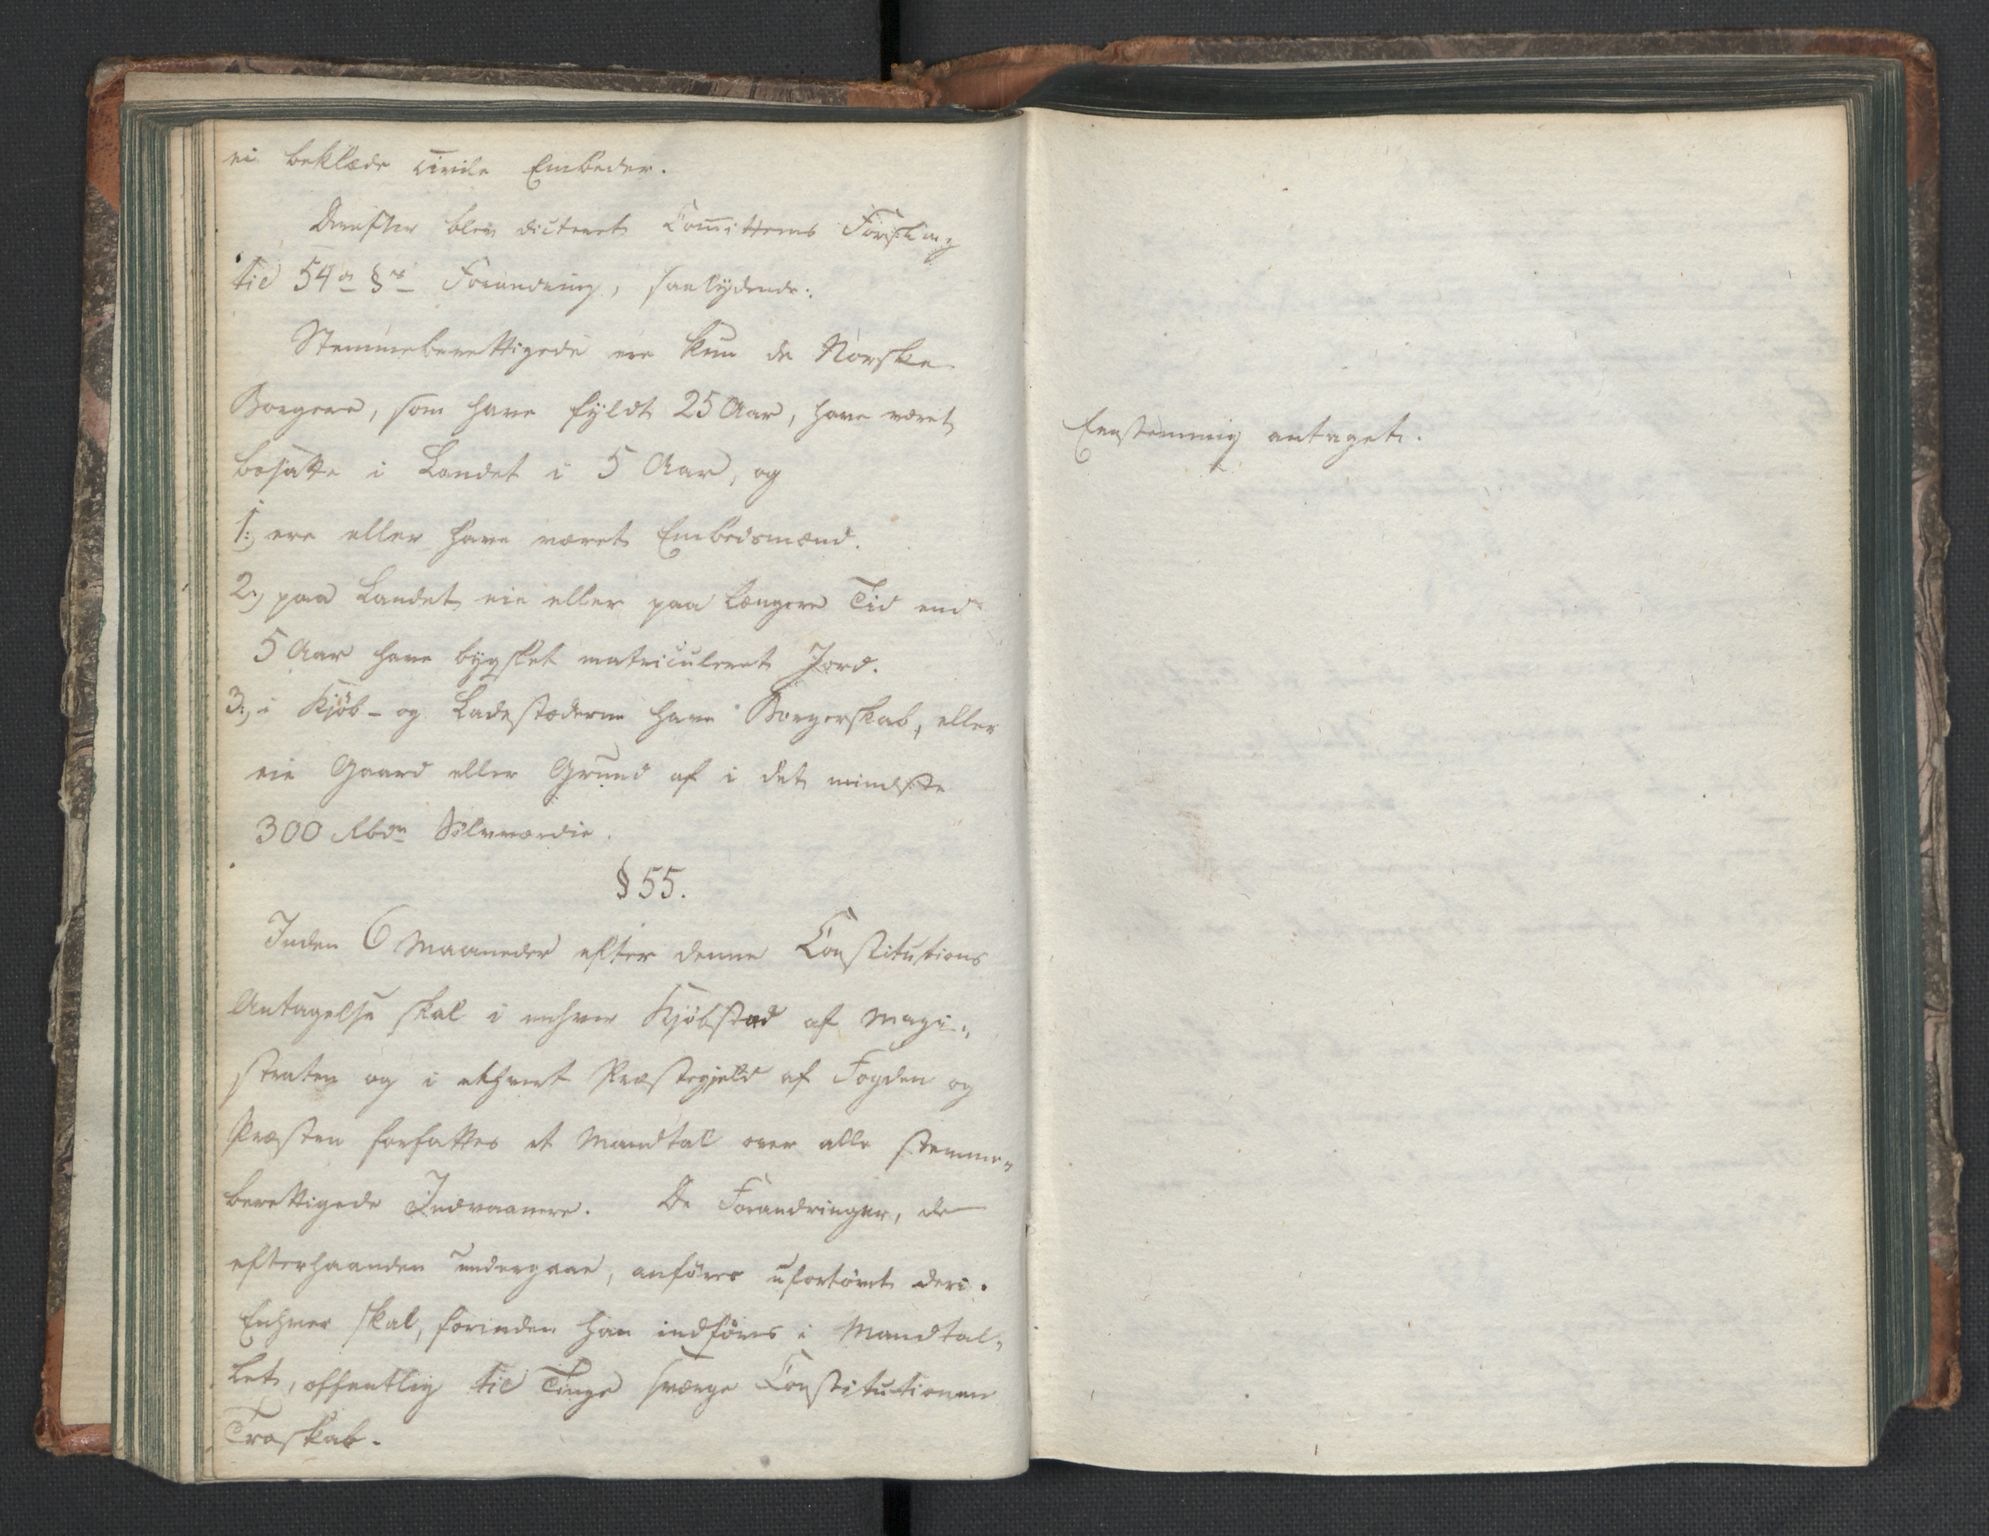 ei beklæde civile Embeder.
Derefter blev dicteret Com̅itteens Forslag
til 54de §s Forandring, saalydende:
Stemmeberettigede ere kun de Norske
Borgere, som have fyldt 25 Aar, have været
bosatte i Landet i 5 Aar, og
1:, ere eller have været Embedsmænd.
2:, paa Landet eie eller paa længere Tid end
5 Aar have bygslet matriculeret Jord.
3:, i Kjøb- og Ladestæderne have Borgerskab, eller
eie Gaard eller Grund af i det mindste
300 Rbdr Sølvværdie.
§ 55.
Inden 6 Maaneder efter denne Constitutions
Antagelse skal i enhver Kjøbstad af Magi-
straten og i ethvert Præstegjeld af Fogden og
Præsten forfattes et Mandtal over alle stemme-
berettigede Indvaanere. De Forandringer, de
efterhaanden undergaae, anføres ufortøvet deri.
Enhver skal, forinden han indføres i Mandtal-
let, offentlig til Tinge sværge Constitutionen
Troskab.
Eenstemmig antaget.